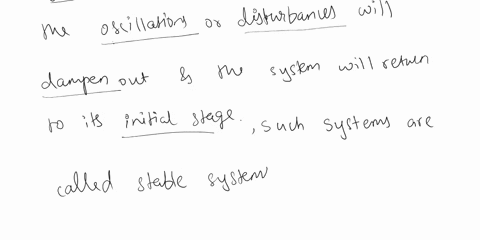 the oscillations or disturbances will
dampen out & the system will return
to its initial stage. , such systems are
called stable system